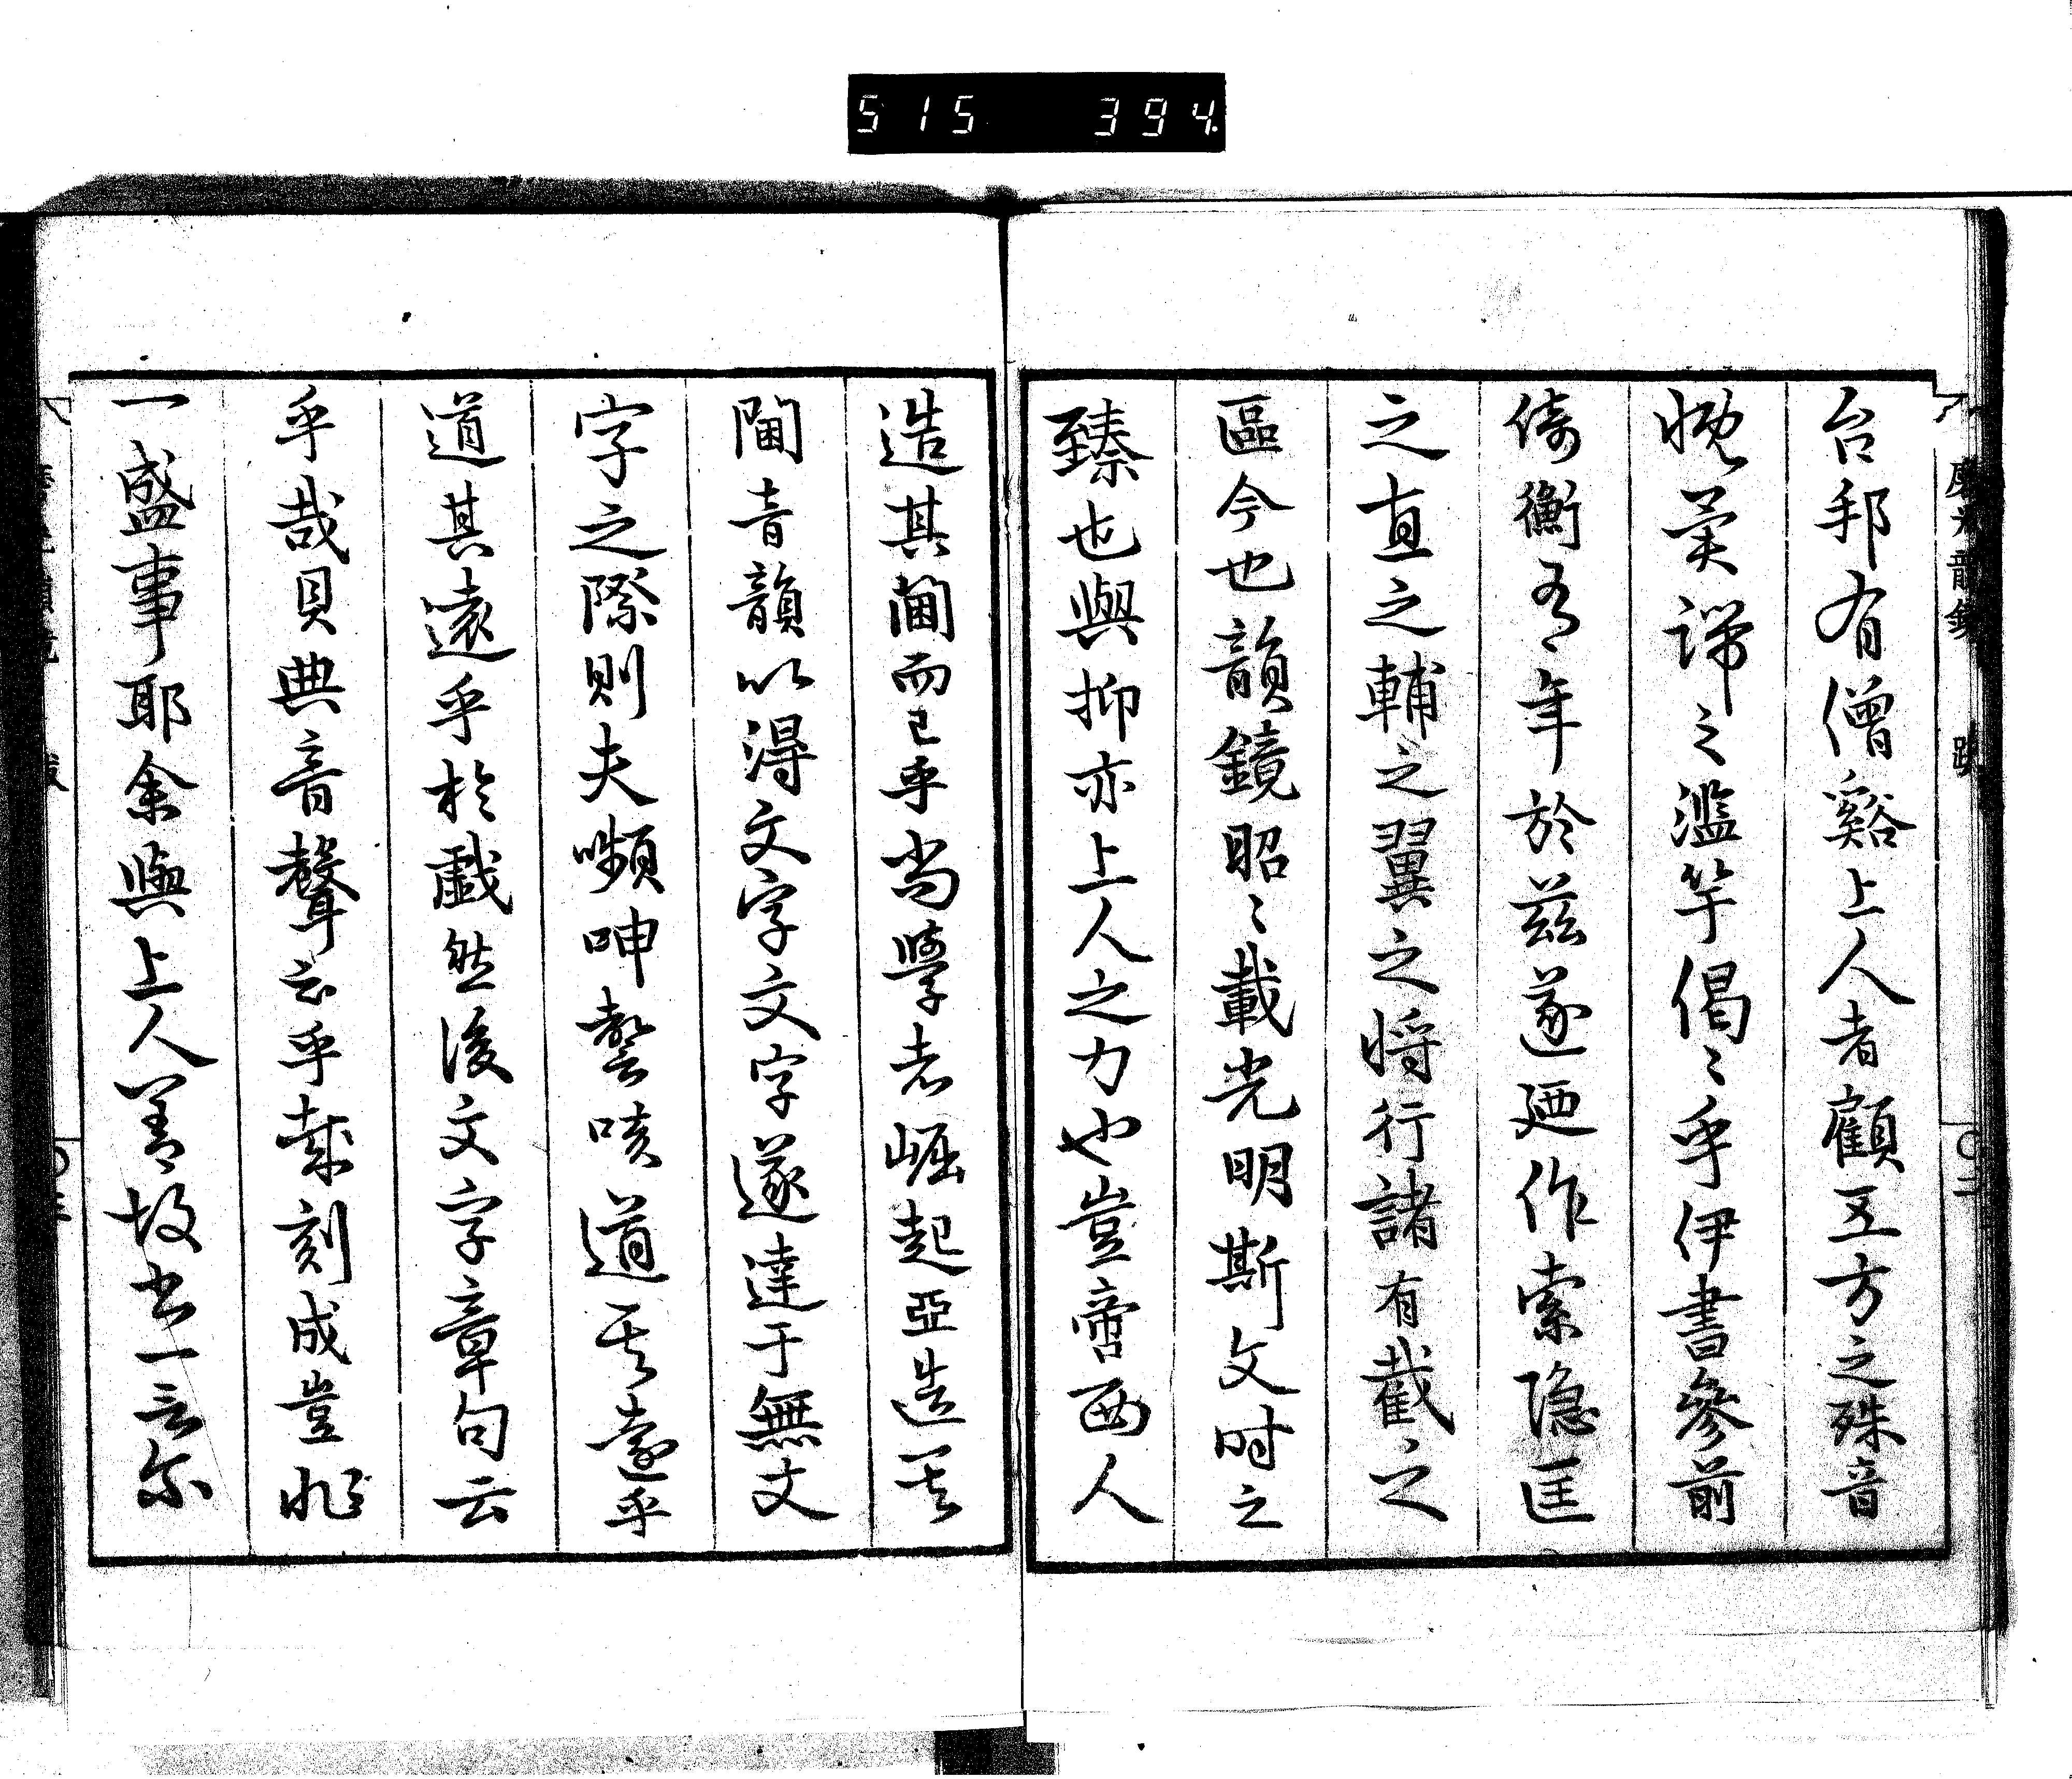 515 394
台邦有僧谿上人者顧五方之殊音
慨彙譯之濫竽偈〻乎伊書參前
倚衡有年於茲遂廼作索隱匡
之直之輔之翼之將行諸有截之
區今也韻鏡昭〻載光明斯文时之
臻也與抑亦上人之力也豈啻西人
造其閫而已乎当學者崛起亞造其
閫音韻以得文字文字遂達于無文
字之際則夫嚬呻謦咳道其遠乎
道其遠乎於戲然後文字章句云
乎哉貝典音聲云乎哉刻成豈非
一盛事耶余與上人善故書一言尔